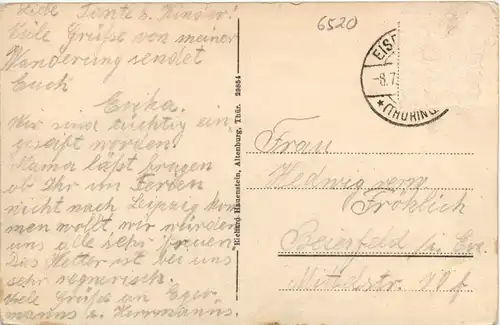 Liebe Tante u. Kinder!
Viele Grüße von meiner
Wanderung sendet
Euch
Erika.
Wir sind tüchtig ein-
geseift worden
Mama läßt fragen
ob Ihr im Ferien
nicht nach Leipzig kom-
men wollt wir würden
uns alle sehr freuen.
Das Wetter ist bei uns
sehr regnerisch.
Viele Grüße an
u. Herrmanns
6520
EISE
-8.7.
(THÜRING
Richard Hauenstein, Altenburg, Thür. 28854
Frau
Hedwig verw.
Fröhlich
Beierfeld i. Erz.